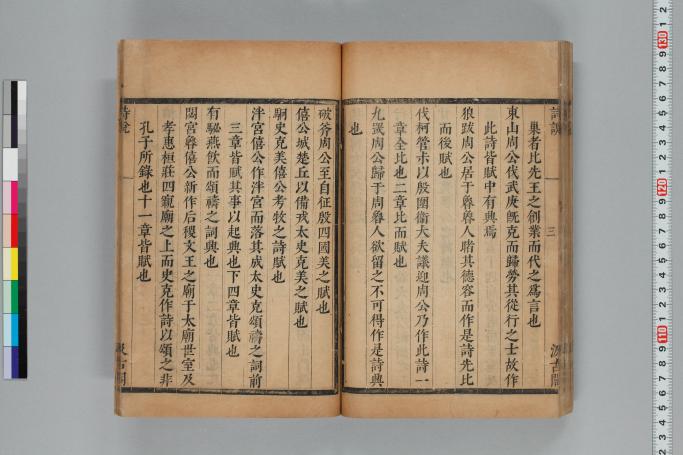 巢者比先王之創業而代之爲言也
東山周公伐武庚旣克而歸勞其從行之士故作
此詩皆賦中有興焉
狼跋周公居于魯魯人睹其德容而作是詩先比
而後賦也
伐柯管未以殷圍衞大夫議迎周公乃作此詩一
章全比也二章比而賦也
九罭周公歸于周魯人欲留之不可得作是詩興
也
破斧周公至自征殷四國美之賦也
僖公城楚丘以備戎太史克美之賦也
駉史克美僖公考牧之詩賦也
泮宮僖公作泮宮而落其成太史克頌禱之詞前
三章皆賦其事以起興也下四章皆賦也
有駜燕飲而頌禱之詞興也
閟宮魯僖公新作后稷文王之廟于太廟世室及
孝惠桓莊四親廟之上而史克作詩以頌之非
孔子所錄也十一章皆賦也
詩說
三
汲古閣
詩說
汲古閣
130
120
110